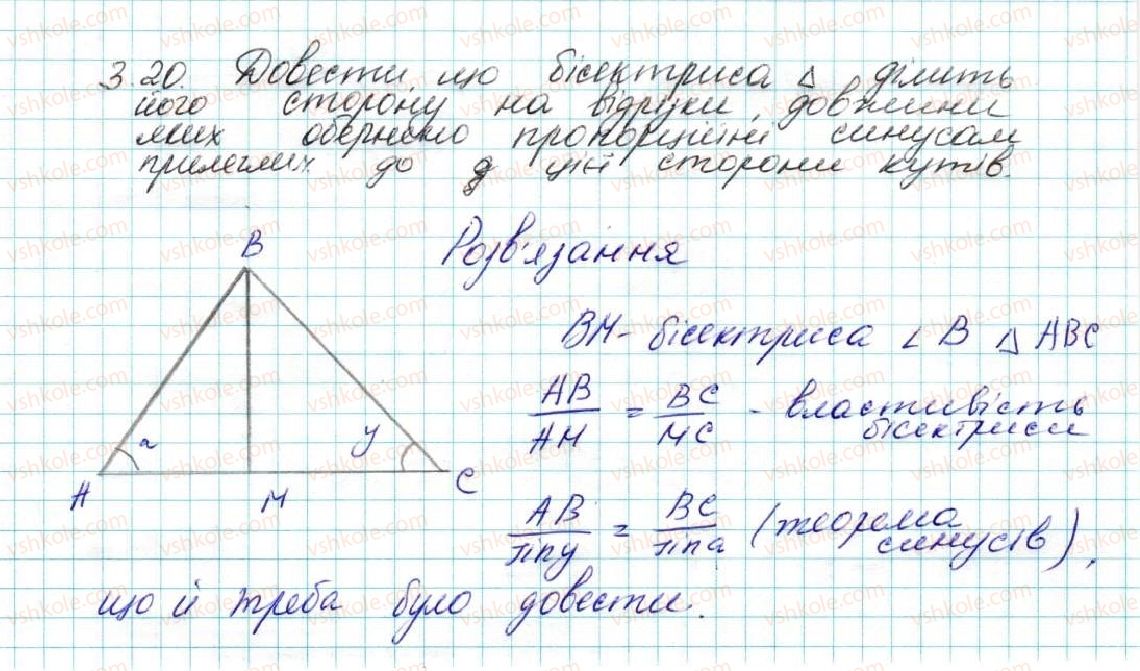 3.20. Довести, що бісектриса △ ділить
його сторону на відрізки, довжини
яких обернено пропорційні синусам
прилеглих до цієї сторони кутів.
Розв'язання
B
BM - бісектриса ∠ B △ ABC
AB/AM = BC/MC - властивість
бісектриси
a y
A M C
AB/sin y = BC/sin a (теорема
синусів),
що й треба було довести.
vshkole.com